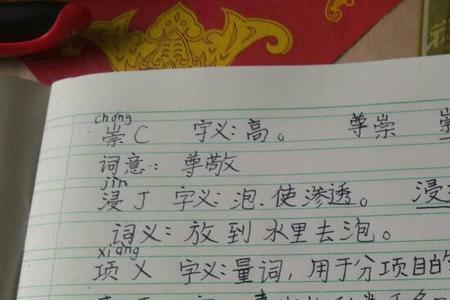 chóng
崇 C 字义:高。 尊崇
词意:尊敬
jìn
浸 J 字义:泡.使渗透。 浸
词义:放到水里去泡。
xiàng
项 X 字义:量词,用于分项目的